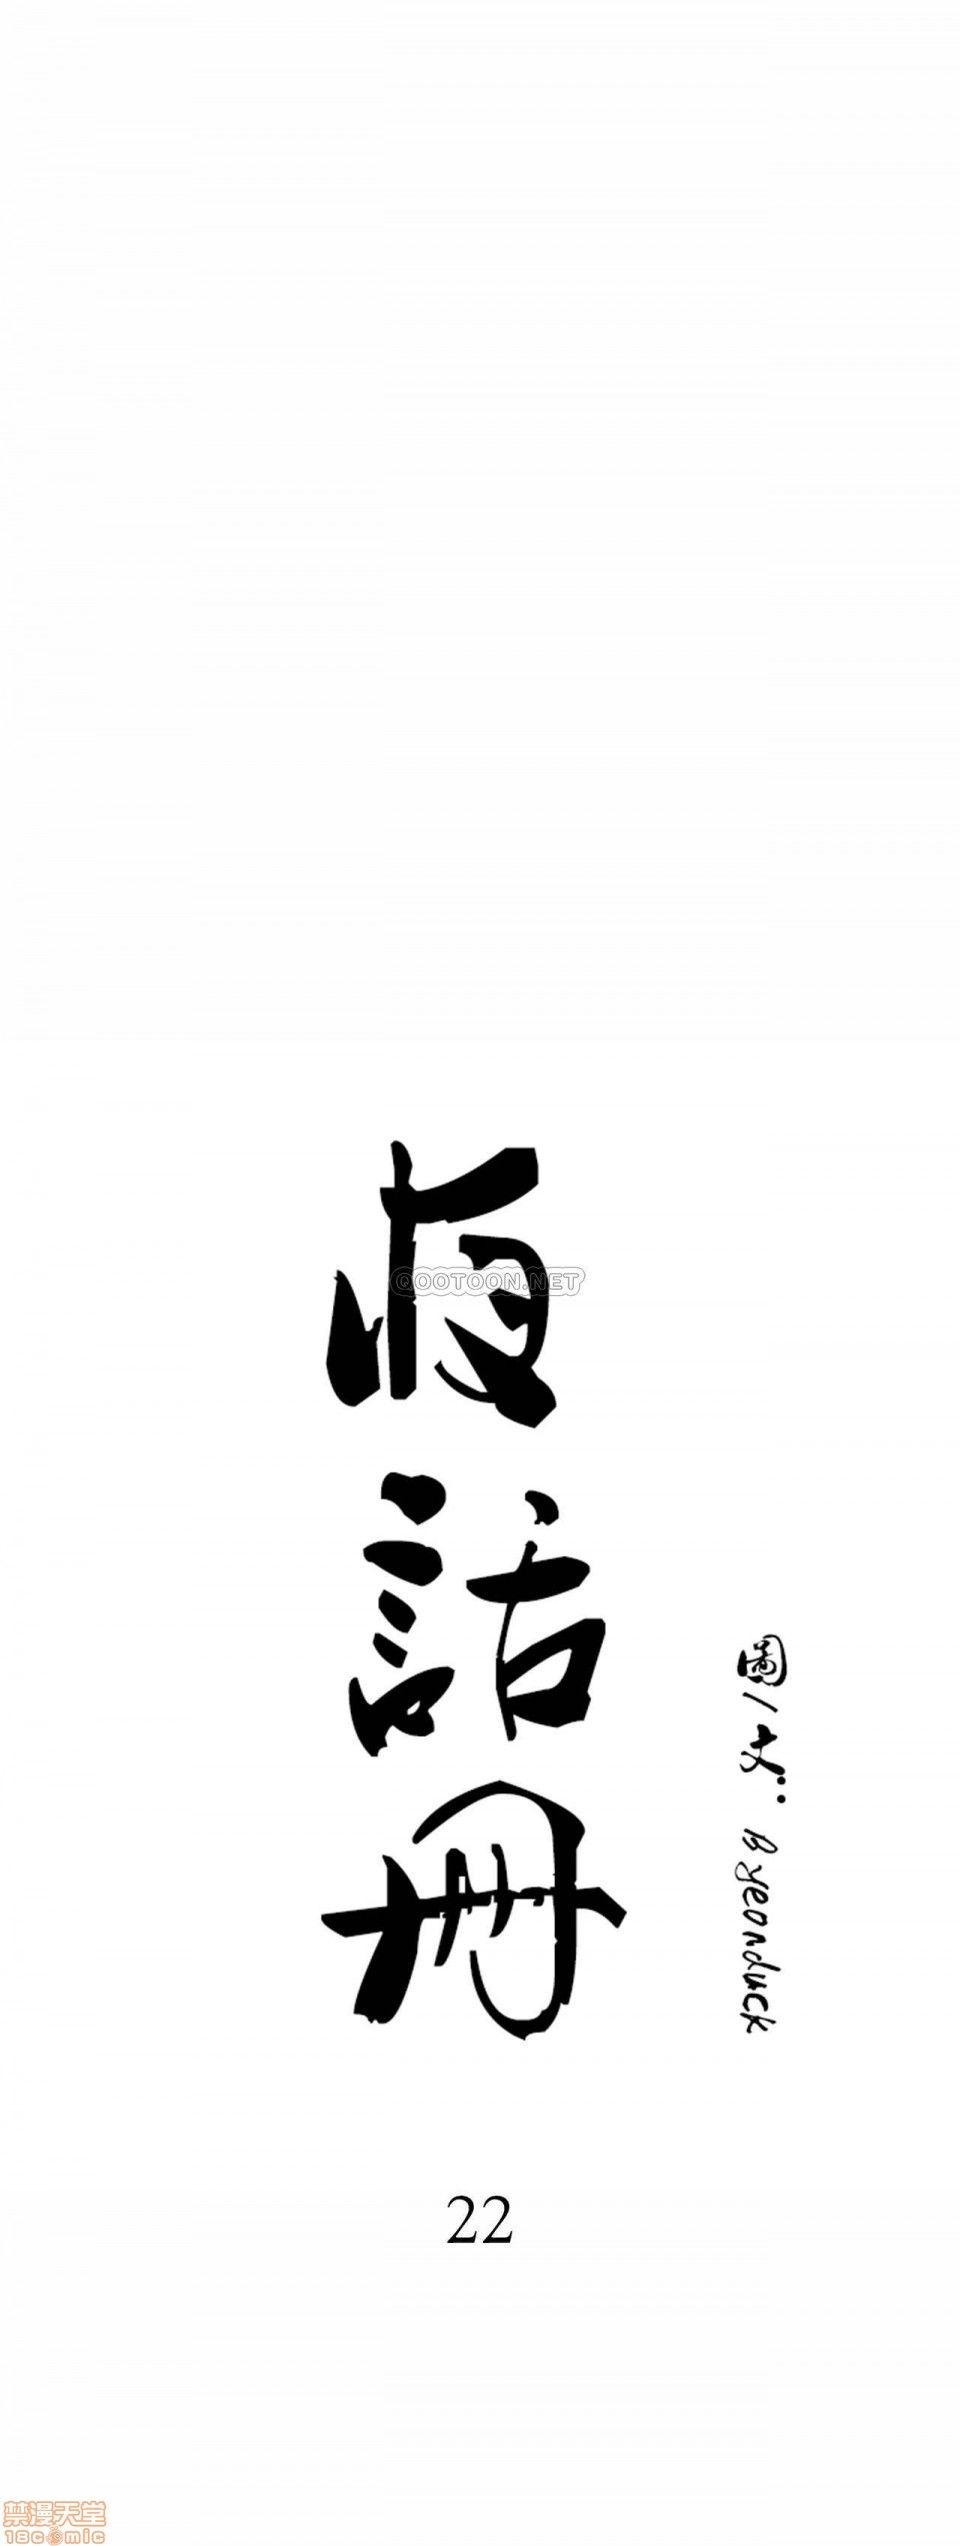 夜話冊
QOOTOON.NET
圖/文：Byeonduck
22
禁漫天堂
18comic